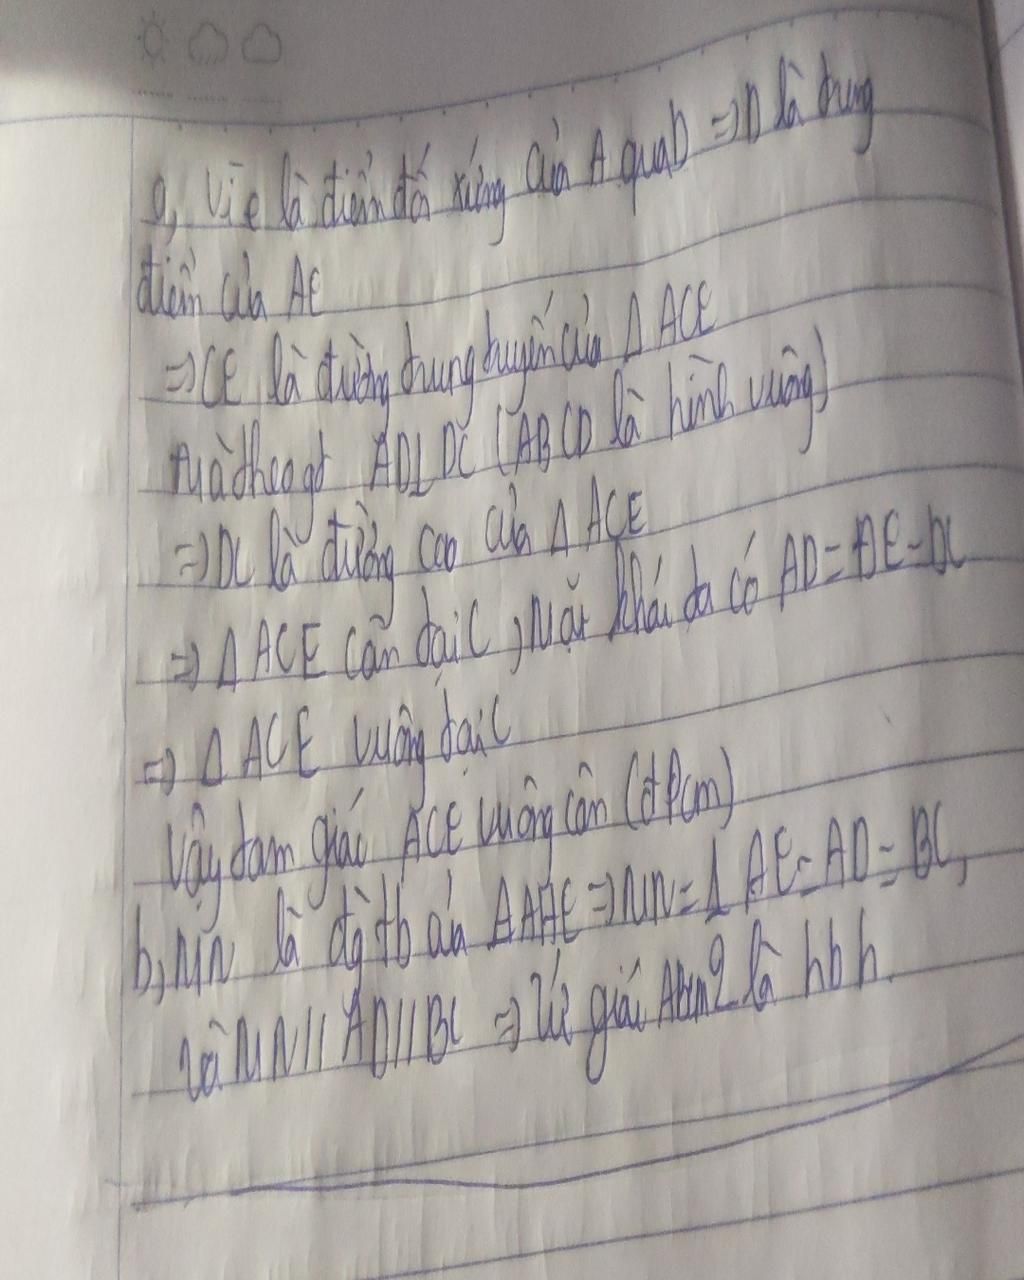 a, Vì E là điểm đối xứng của A qua D => D là trung
điểm của AE
=> CE là đường trung tuyến của Δ ACE
Mà theo gt AD⊥DC (ABCD là hình vuông)
=> DC là đường cao của Δ ACE
=> Δ ACE cân tại C, Mặt khác ta có AD = DE = DC
=> Δ ACE vuông tại C
Vậy tam giác ACE vuông cân (đpcm)
b, MN là đg tb của ΔAHE => MN = 1 AE = AD = BC,
và MN // AD // BC => Tứ giác là hbh.